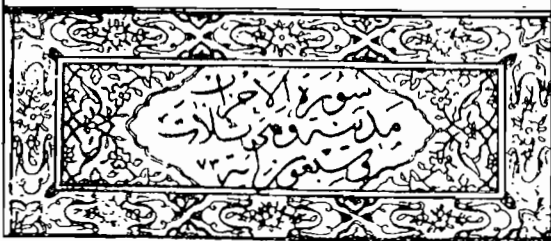 سورة الاحزاب
مدنية وهي ثلاث
وسبعون آية ٧٣